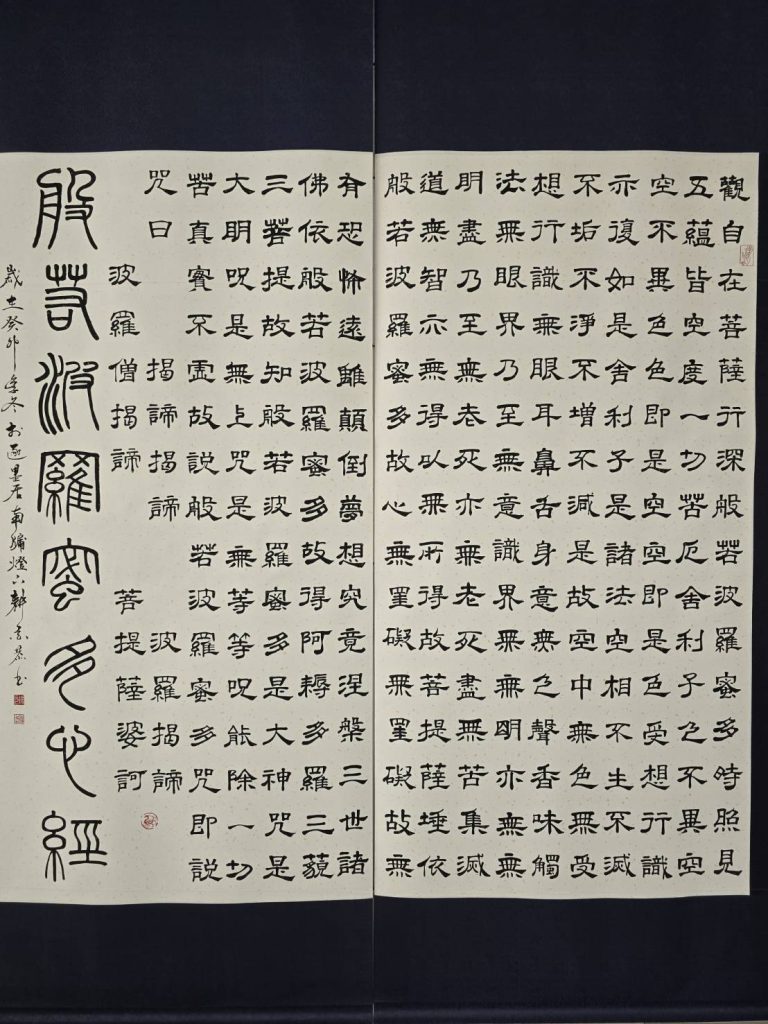 觀自在菩薩行深般若波羅蜜多時照見
五蘊皆空度一切苦厄舍利子色不異空
空不異色色即是空空即是色受想行識
亦復如是舍利子是諸法空相不生不滅
不垢不淨不增不減是故空中無色無受
想行識無眼耳鼻舌身意無色聲香味觸
法無眼界乃至無意識界無無明亦無無
明盡乃至無老死亦無老死盡無苦集滅
道無智亦無得以無所得故菩提薩埵依
般若波羅蜜多故心無罣礙無罣礙故無
有恐怖遠離顛倒夢想究竟涅槃三世諸
佛依般若波羅蜜多故得阿耨多羅三藐
三菩提故知般若波羅蜜多是大神咒是
大明呪是無上咒是無等等呪能除一切
苦真實不虛故說般若波羅蜜多咒即說
咒曰 揭諦揭諦 波羅揭諦
波羅僧揭諦 菩提薩婆訶
般若波羅蜜多心經
歲在癸卯季冬於墨居南燈下書